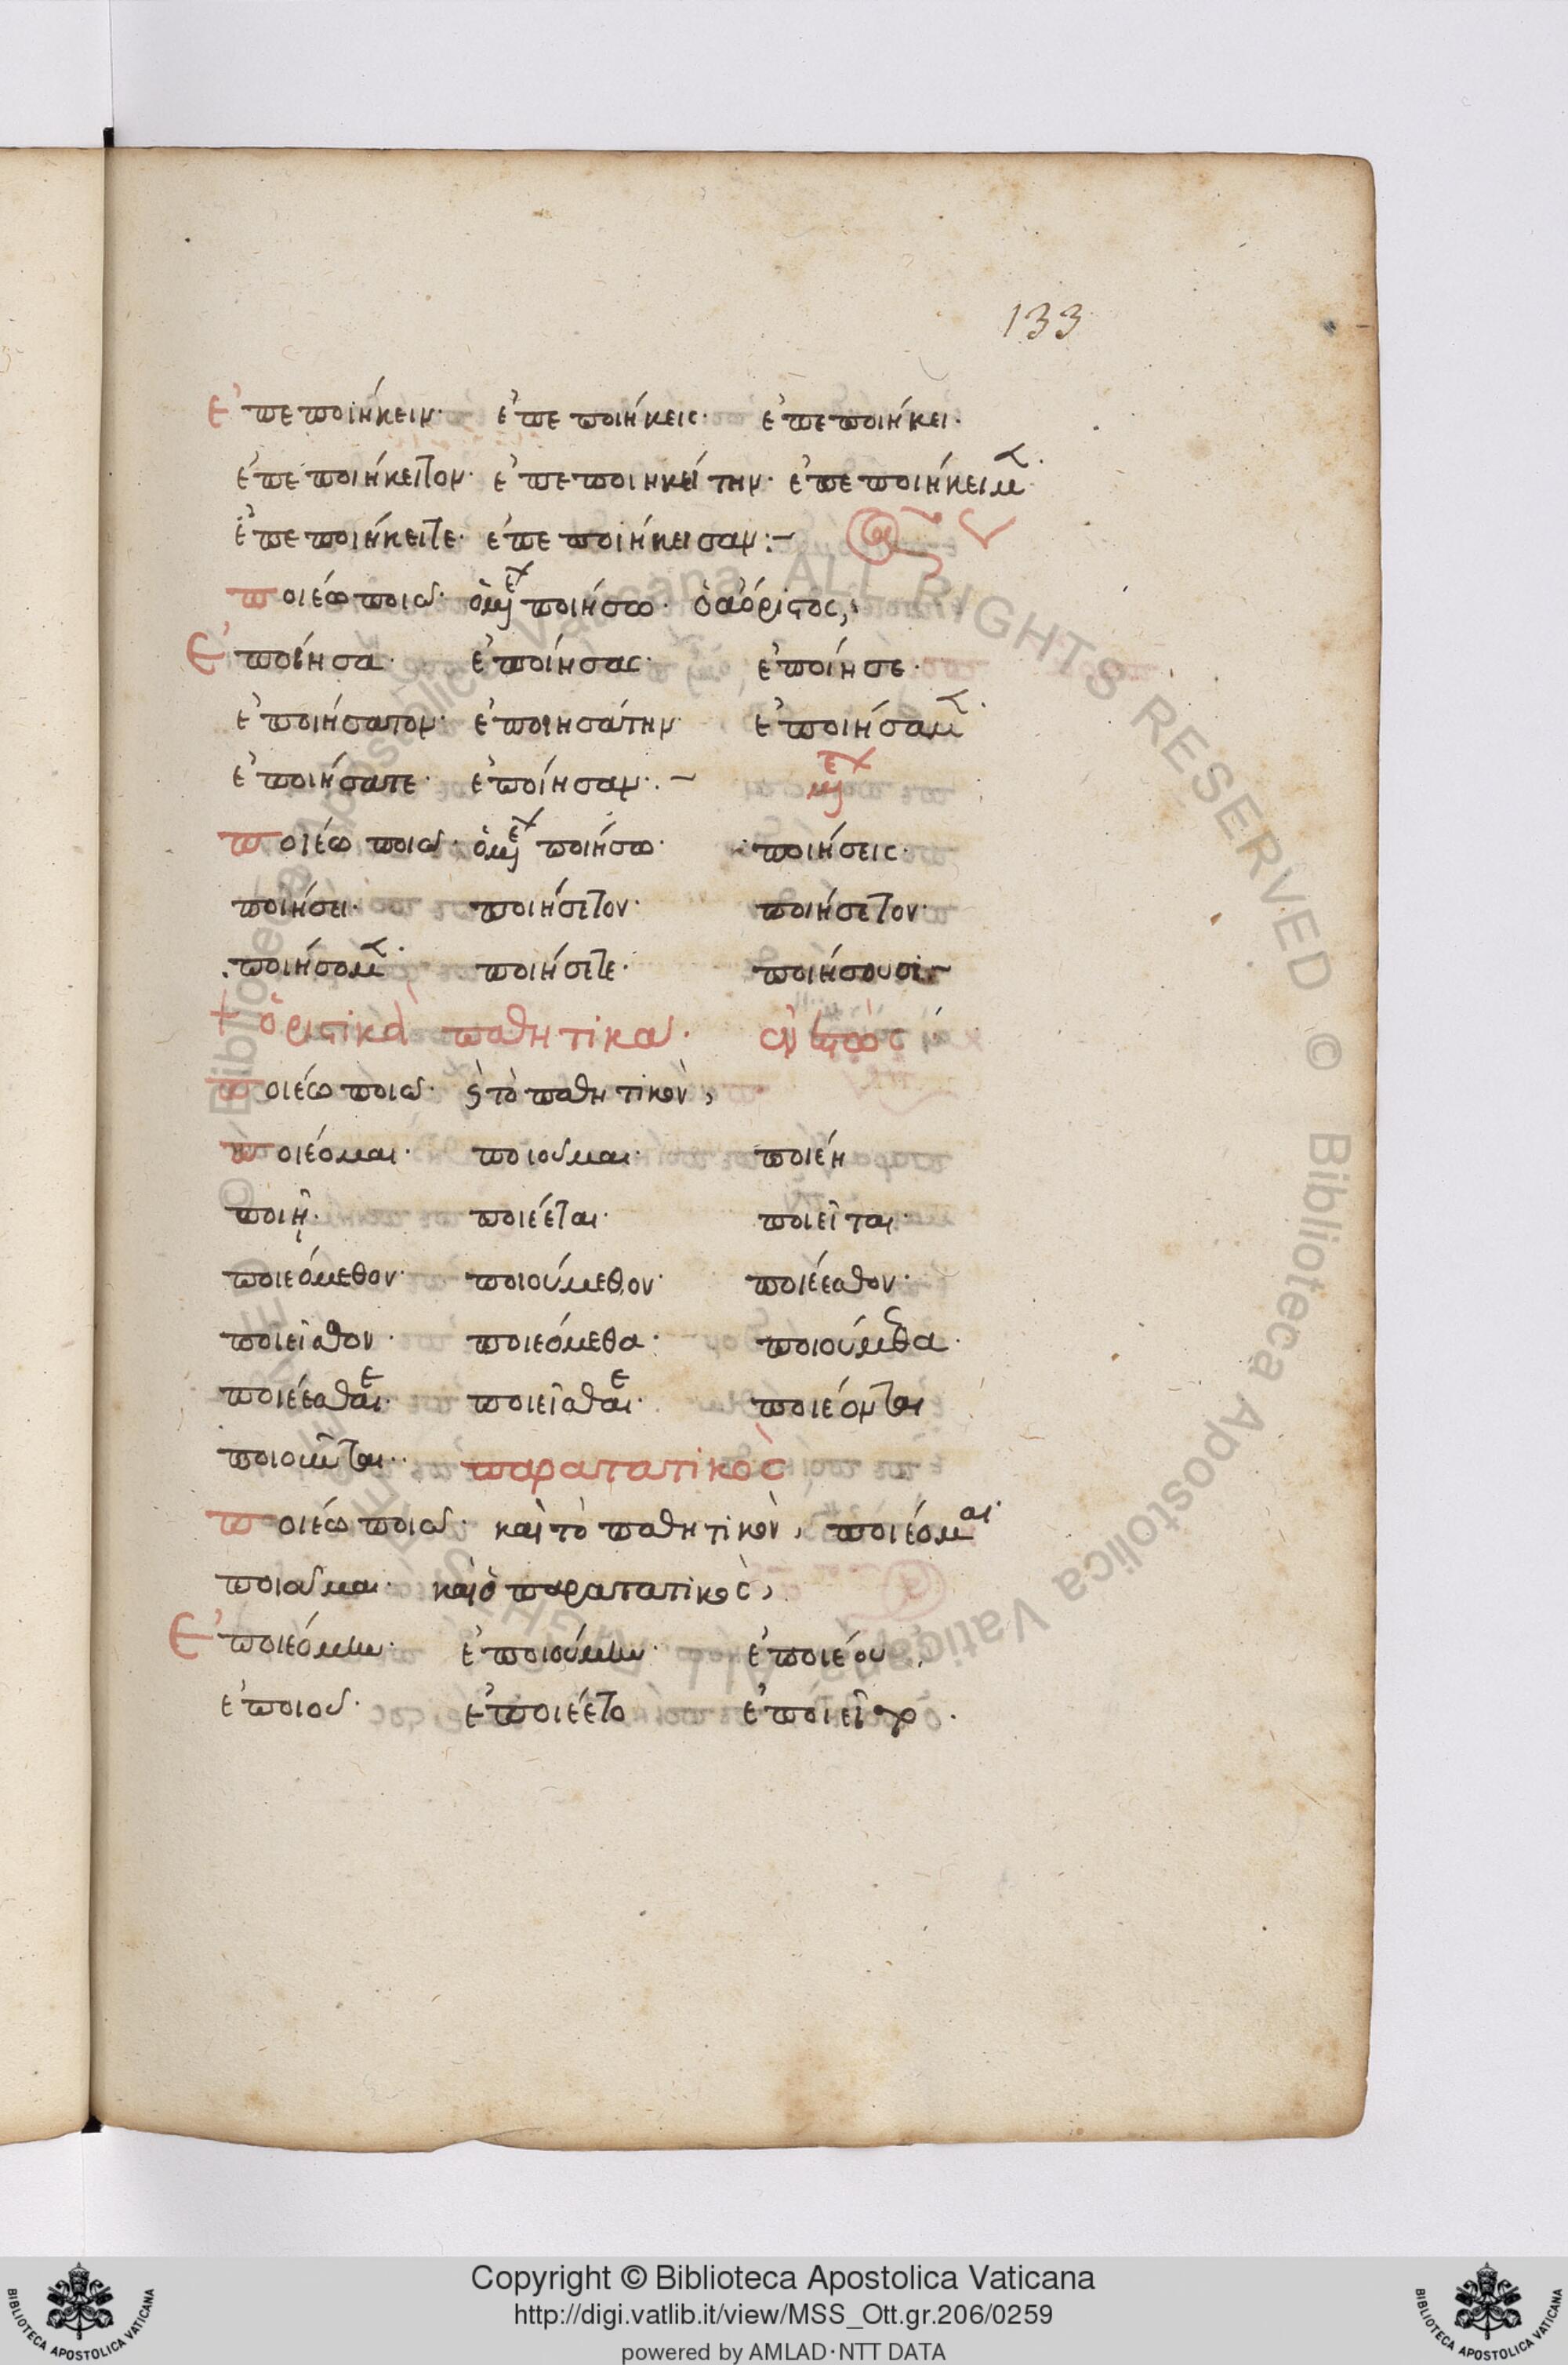 133
ἐπεποιήκειν· ἐπεποιήκεις· ἐπεποιήκει·
ἐπεποιήκειτον· ἐπεποιηκείτην· ἐπεποιήκειμ
ἐπεποιήκειτε· ἐπεποιήκεισαν:–
ποιέω ποιῶ· ὁ μ ποιήσω· ὁ ἀόριστος,
Ἐποίησα· ἐποίησας· ἐποίησε·
ἐποιήσατον· ἐποιησάτην ἐποιήσαμ
ἐποιήσατε· ἐποίησαν·– μ
ποιέω ποιῶ· ὁ μ ποιήσω· ποιήσεις·
ποιήσει· ποιήσετον· ποιήσετον·
ποιήσομ ποιήσετε· ποιήσουσι–
+ ὁριστικὰ παθητικά· ἐνεστώς
ποιέω ποιῶ· κ τὸ παθητικόν,
ποιέομαι· ποιοῦμαι· ποιέη
ποιῆ· ποιέεται· ποιεῖται·
ποιεόμεθον· ποιούμεθον· ποιέεσθον·
ποιεῖσθον· ποιεόμεθα· ποιούμεθα·
ποιέεσθαι· ποιεῖσθαι· ποιέονται
ποιοῦνται·· παρατατικὸς
ποιέω ποιῶ· καὶ τὸ παθητικὸν, ποιέομαι·
ποιοῦμαι· καὶ ὁ παρατατικὸς,
Ἐποιεόμην· ἐποιούμην· ἐποιέου,
ἐποιοῦ· ἐποιέετο ἐποιεῖτο·
© Biblioteca Apostolica Vaticana ALL RIGHTS RESERVED © Biblioteca Apostolica Vaticana ALL RIGHTS RESERVED
Copyright © Biblioteca Apostolica Vaticana
http://digi.vatlib.it/view/MSS_Ott.gr.206/0259
powered by AMLAD·NTT DATA
BIBLIOTECA APOSTOLICA VATICANA
BIBLIOTECA APOSTOLICA VATICANA